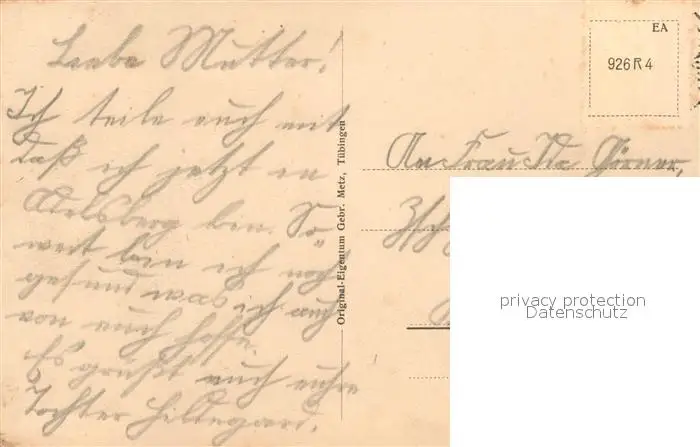 Liebe Mutter!
Ich teile euch mit
daß ich jetzt in
Adelsberg bin. So
weit bin ich noch
gesund was ich auch
von euch hoffe.
Es grüßt euch eure
Tochter Hildegard.
Original-Eigentum Gebr. Metz, Tübingen
EA
926R4
An Frau
privacy protection
Datenschutz